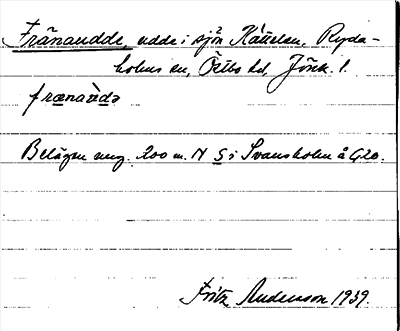 Fränaudde, udde i sjön Rusken, Ryda-
holms sn, Östbo hd, Jönk. l.
frænaùdə
Belägen ung. 200 m. N S i Svansholm å G20.
Fritz Andersson 1939.